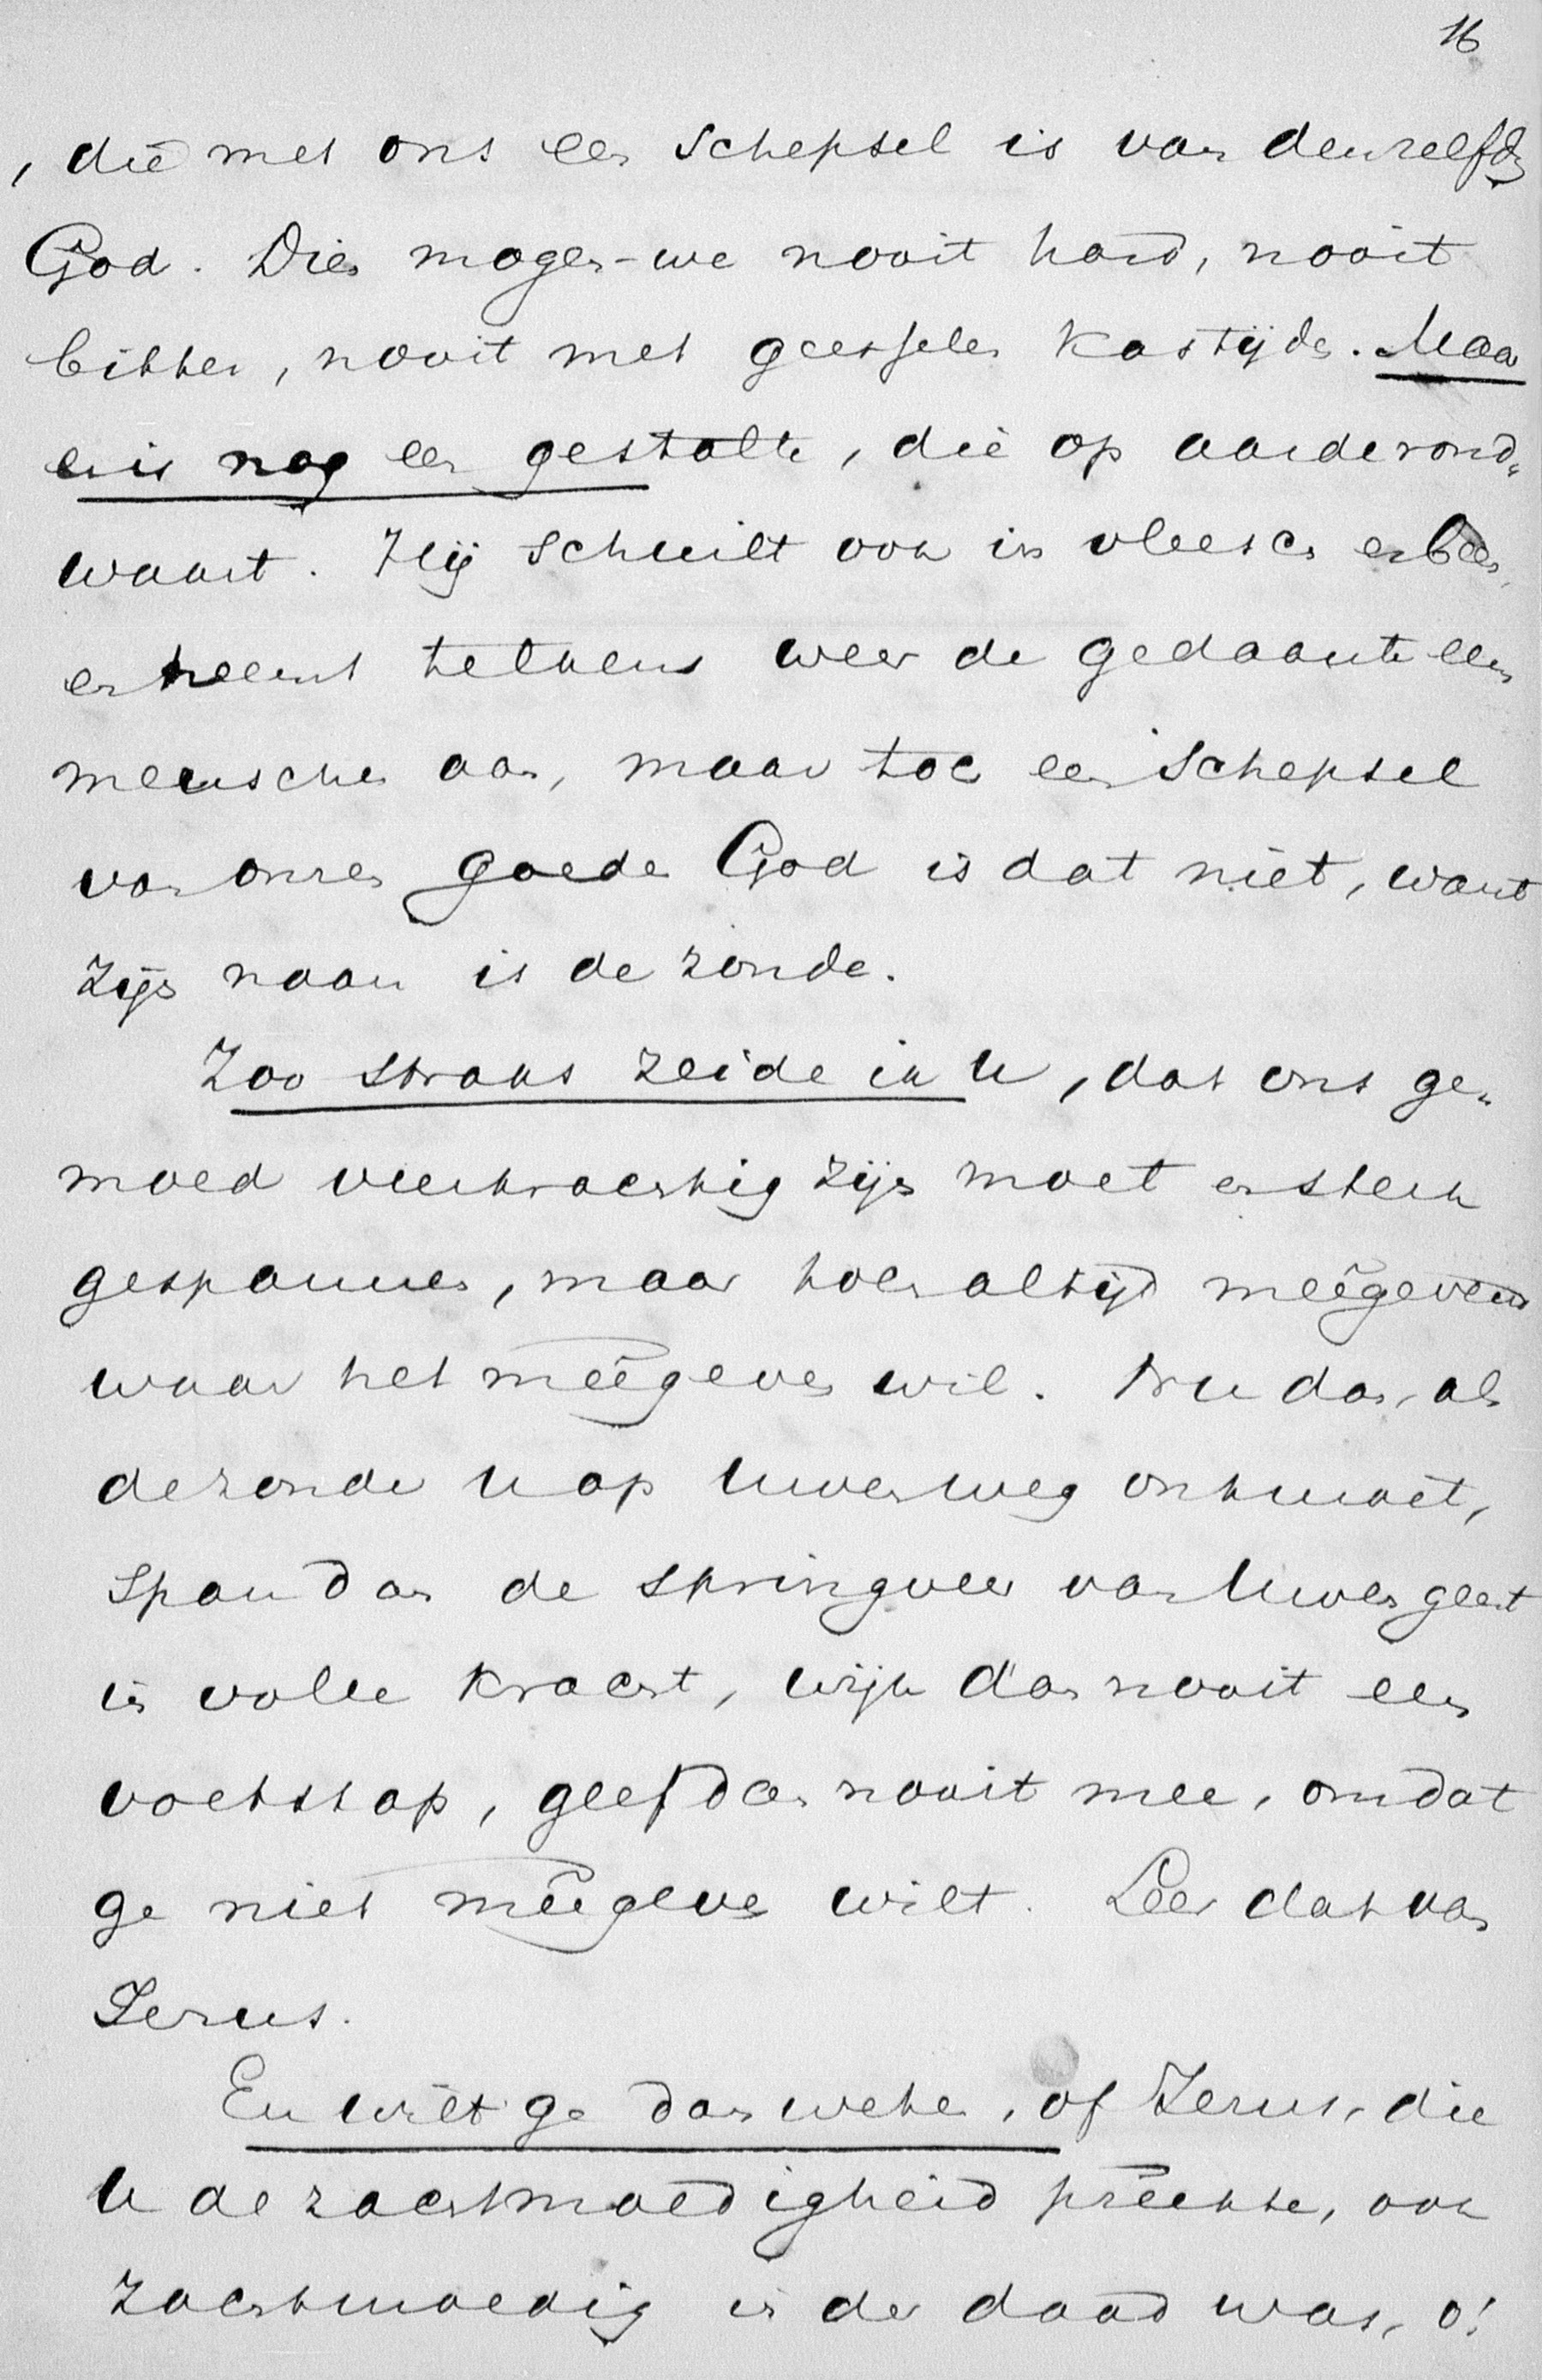 16
, die met ons een schepsel is van denzelfde
God. Dien mogen-we nooit hard, nooit
bitter, nooit met geesselen kastijden. Maar
er is nog een gestalte, die op aarde rond„
waart. Hij schuilt ook in vleesch en been,
en neemt telkens weer de gedaante een
menschen aan, maar toch een schepsel
van onzen goeden God is dat niet, want
zijn naam is de zonde.
Zoo straks zeide ik U, dat ons ge„
moed veerkrachtig zijn moet en sterk
gespannen, maar toch altijd meêgevend
waar het meêgeven wil. Nu dan, als
de zonde U op Uwen weg ontmoet,
span dan de springveer van Uwen geest
in volle kracht, wijk dan nooit een
voetstap, geef dan nooit mee, omdat
ge niet meêgeven wilt. Leer dat van
Jezus.
En wilt ge dan weten, of Jezus, die
U de zachtmoedigheid preekte, ook
zachtmoedig in de daad was, o!